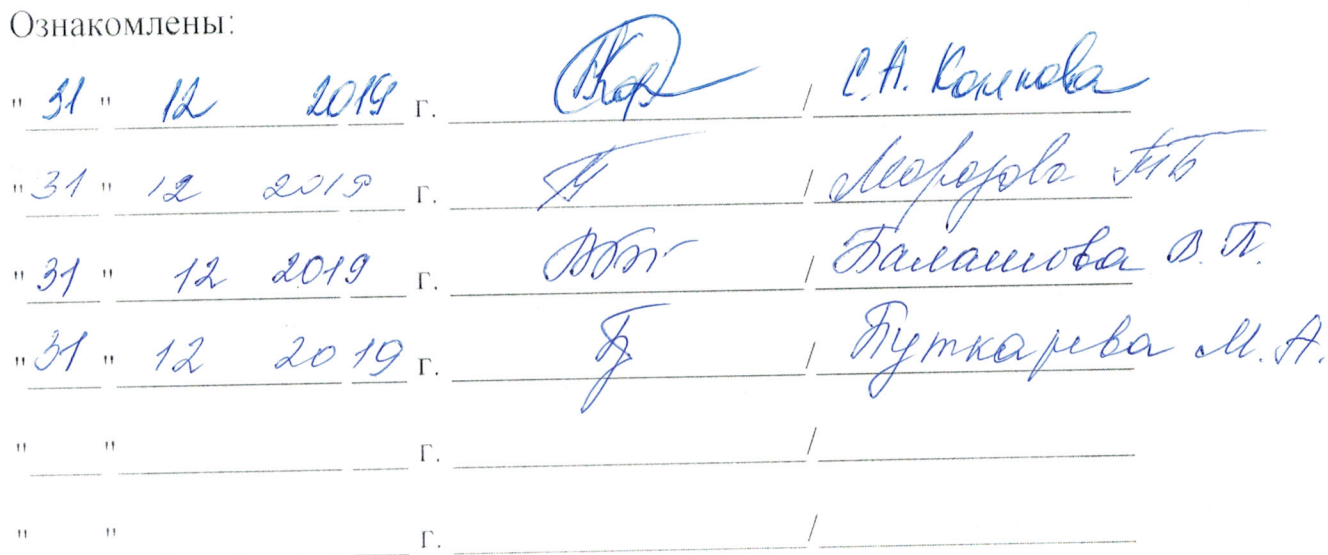 Ознакомлены:
" 31 " 12 2019 г. / С.А.
" 31 " 12 2019 г. / Морозова ТБ
" 31 " 12 2019 г. / Балашова В.П.
" 31 " 12 2019 г. / Путкарева М.А.
" " г. /
" " г. /